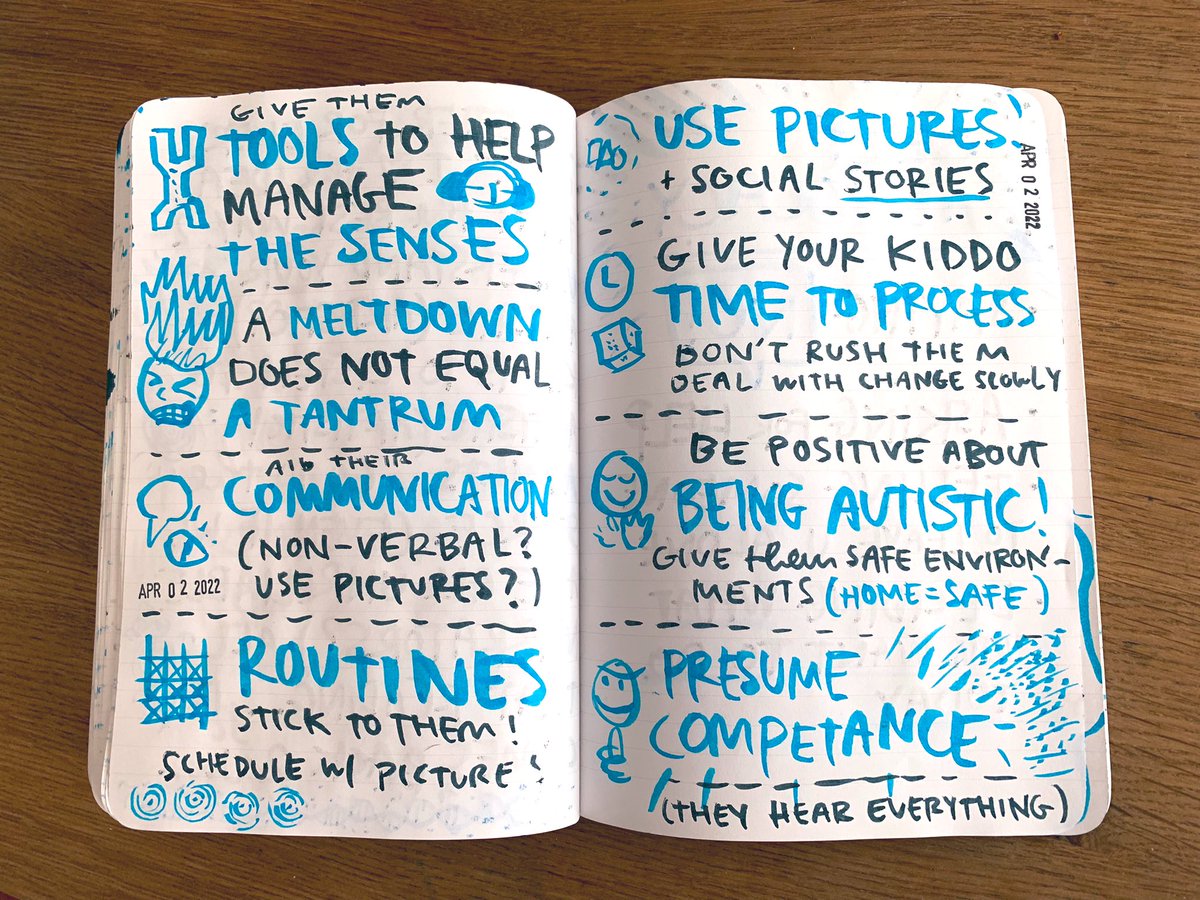 GIVE THEM
TOOLS TO HELP
MANAGE
THE SENSES
A MELTDOWN
DOES NOT EQUAL
A TANTRUM
AID THEIR
COMMUNICATION
(NON-VERBAL?
USE PICTURES?)
APR 02 2022
ROUTINES
STICK TO THEM!
SCHEDULE W/ PICTURES
USE PICTURES!
+ SOCIAL STORIES
APR 02 2022
GIVE YOUR KIDDO
TIME TO PROCESS
DON'T RUSH THEM
DEAL WITH CHANGE SLOWLY
BE POSITIVE ABOUT
BEING AUTISTIC!
GIVE them SAFE ENVIRON-
MENTS (HOME=SAFE)
PRESUME
COMPETANCE-
(THEY HEAR EVERYTHING)